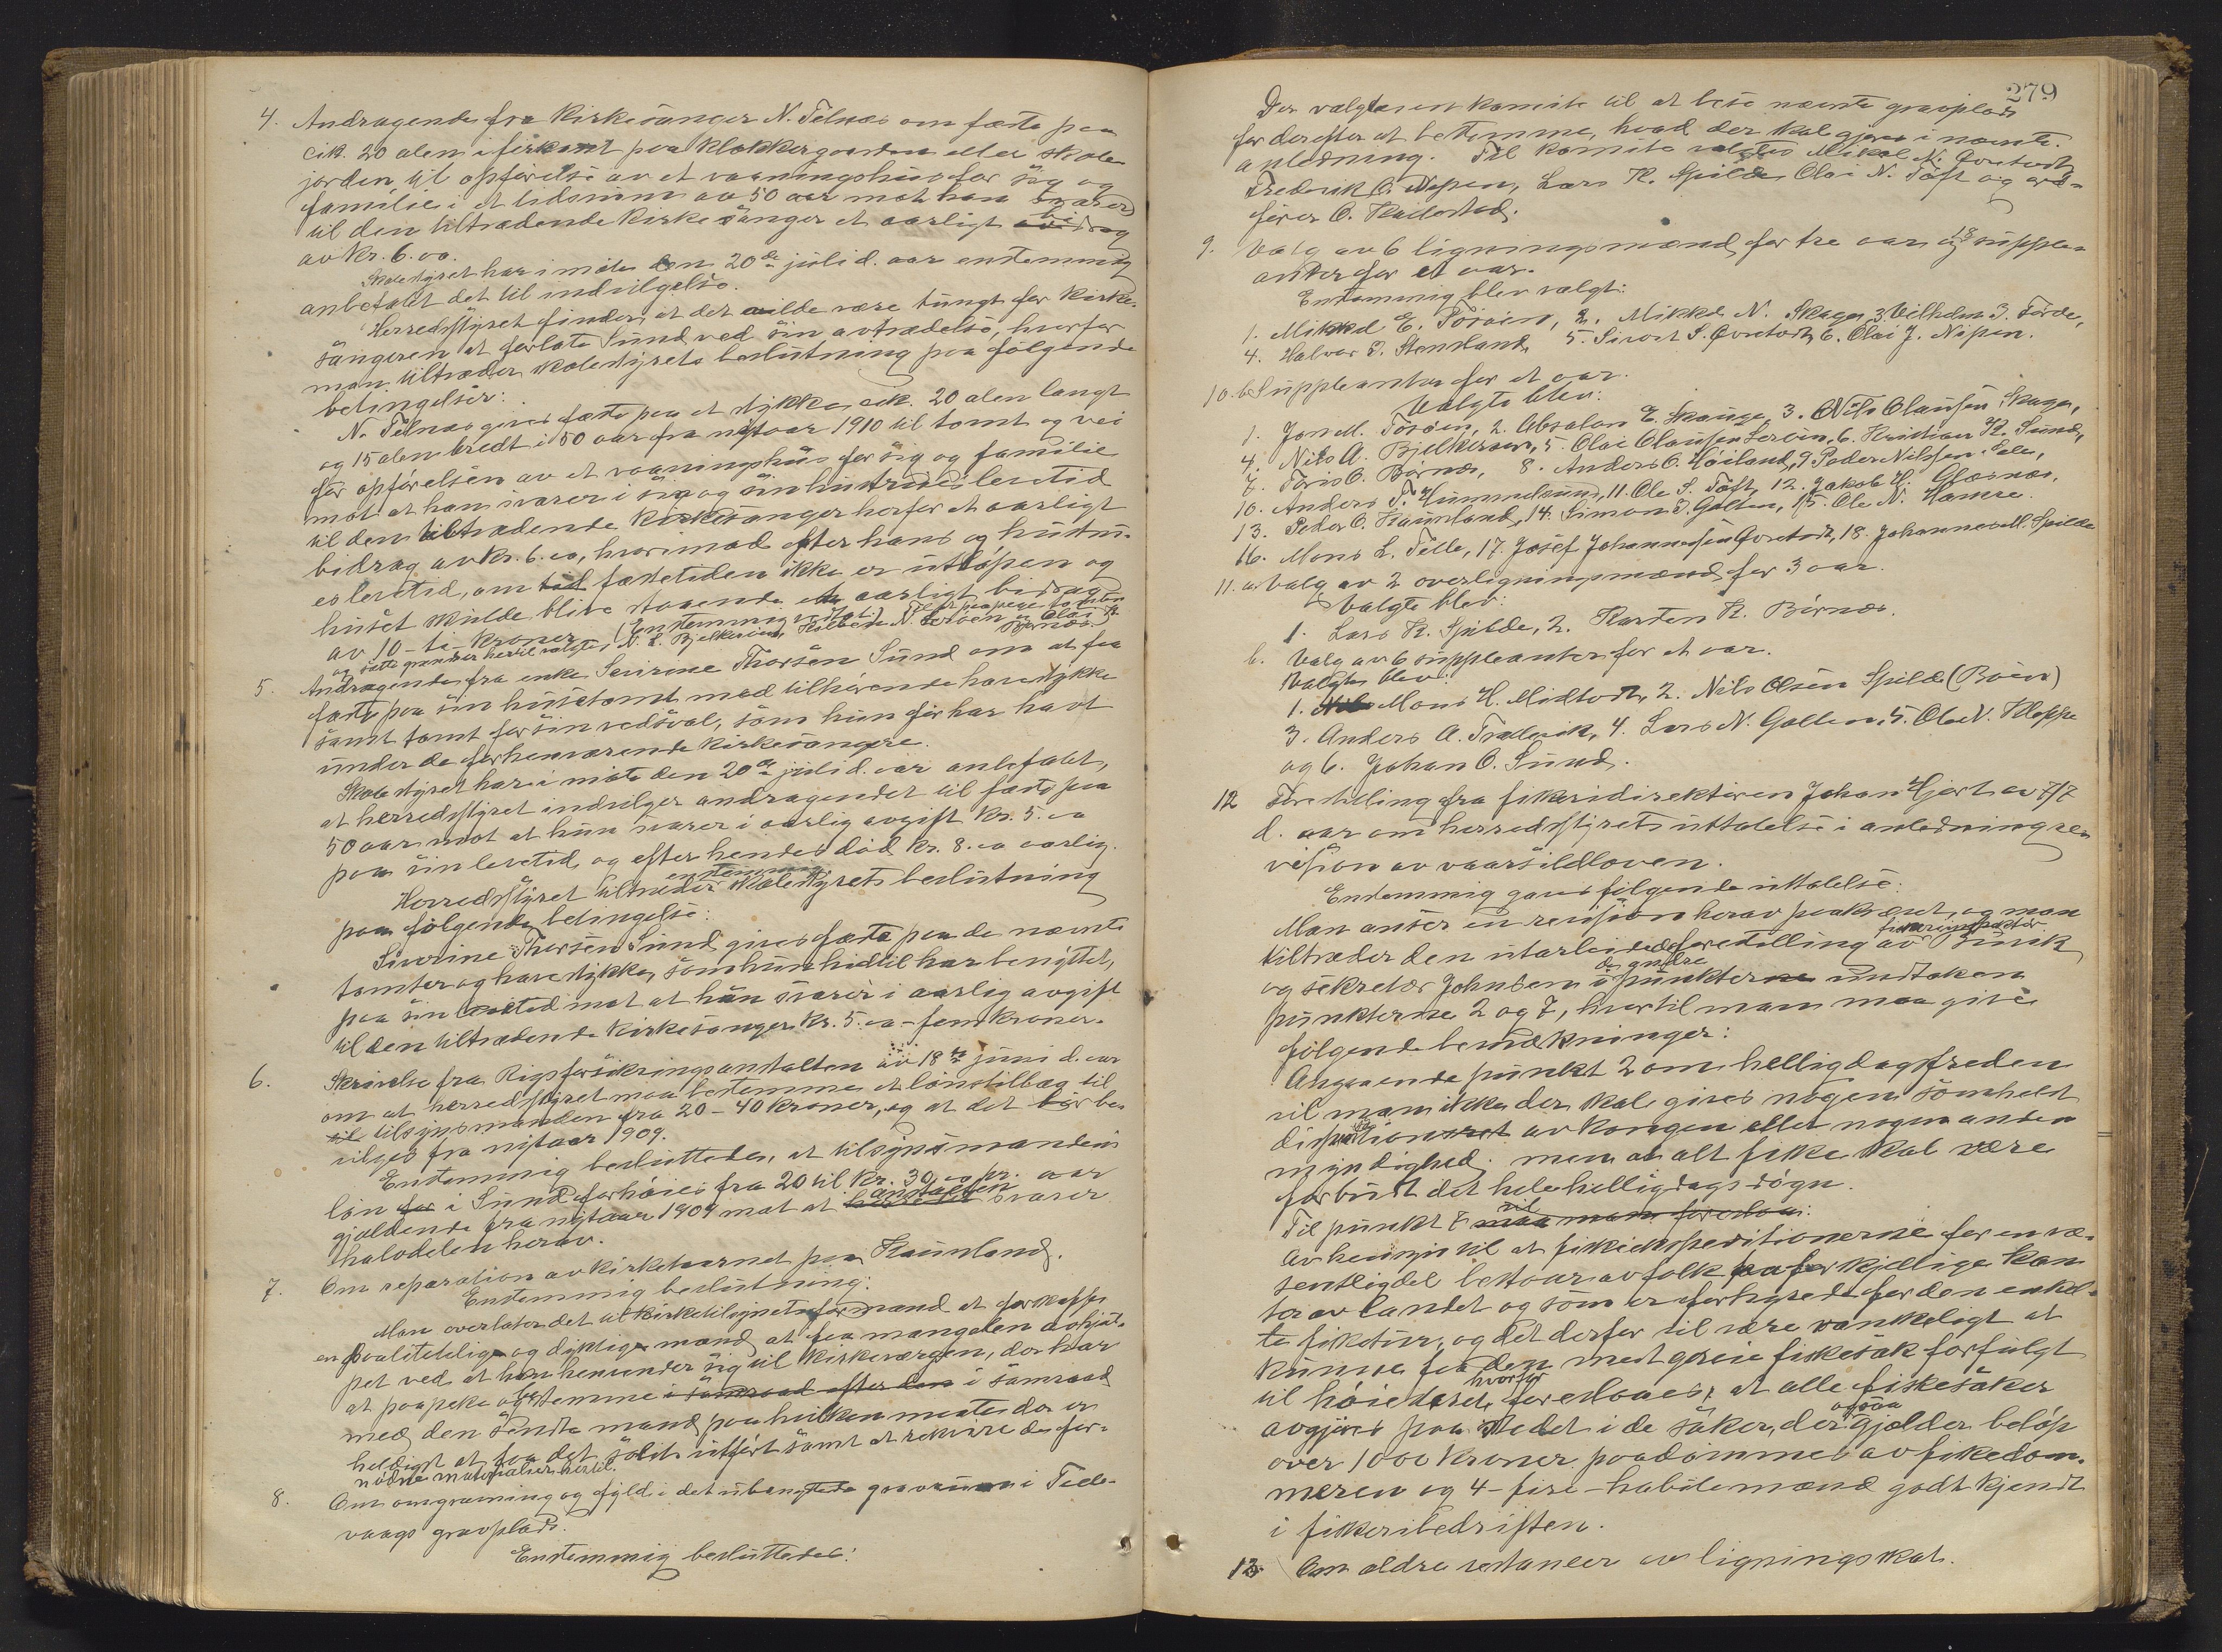 4. Andragende fra Kirkesanger N. Telnæs om fæste paa
cik. 20 alen i firkant paa Klokkergaarden eller skole-
jorden til opførelse av et vaaningshus for sig og
familie i et tidsrum av 50 aar mot han svarer
til den tiltrædende Kirkesanger et aarligt bidrag
av Kr. 6.00.
Skolestyret har i møte den 20de juli d. aar enstemmig
anbefalet det til indvilgelse.
Herredsstyret finder, at det vilde være tungt for Kirke-
sangeren at forlate Sund ved sin avtrædelse, hvorfor
man tiltræder skolestyrets beslutning paa følgende
betingelser:
N. Telnæs gives fæste paa et stykke, cik. 20 alen langt
og 15 alen bredt i 50 aar fra nytaar 1910 til tomt og vei
for opførelsen av et vaaningshus for sig og familie
mot at han svarer i sin og sin hustrues levetid
til den tiltrædende Kirkesanger herfor et aarligt
bidrag av kr. 6.00, hvorimod efter hans og hustru-
es levetid, om tid fæstetiden ikke er utløpen og
huset skulde blive staaende et aarligt bidrag
av 10 - ti - kroner (Enstemmig vedtat.) Til at paapege tomten
og sætte grændser hertil valgtes N. L. Bjelkerøen, N. Lerøen og Olai
Børnæs
5. Andragende fra enke Severine Thorsen Sund om at faa
fæste paa sin hustomt med tilhørende havestykke
samt tomt for sin vedsval, som hun før har havt
under de forhenværende kirkesangere.
Skolestyret har i møte den 20de juli d. aar anbefalet,
at herredsstyret indvilger andragendet til fæste paa
50 aar mot at hun svarer i aarlig avgift kr. 5.00
paa sin levetid og efter hendes død kr. 8.00 aarlig.
Herredsstyret tiltræder enstemmig skolestyrets beslutning
paa følgende betingelse:
Severine Thorsen Sund gives fæste paa de nævnte
tomter og havestykke, som hun hidtil har benyttet,
paa sin levetid mot at hun svarer i aarlig avgift
til den tiltrædende Kirkesanger kr. 5.00 - fem kroner.
6. Skrivelse fra Rigsforsikringsanstalten av 18de juni d. aar
om at herredsstyret maa bestemme et lønstillæg til
til tilsynsmanden fra 20 - 40 kroner, og at det bør be-
vilges fra nytaar 1909.
Enstemmig besluttedes, at tilsynsmandens
løn for i Sund forhøies fra 20 til kr. 30.00 pr. aar
gjældende fra nytaar 1909 mot at anstalten svarer
halvdelen herav.
7. Om reparation av kirketaarnet paa Kausland.
Enstemmig beslutning:
Man overlater det til kirketilsynets formand at forskaffe
en paalitelig og dyktig mand at faa mangelen avhjul-
pet ved at han henvender sig til kirkeværgen, der har
at paapeke og bestemme i samraad efter den i samraad
med den sendte mand paa hvilken maate der er
heldigst at faa det solit utført samt at rekvirere de for-
nødne materialier hertil.
8. Om omgravning og fyld i det ubenyttede gravrum i Tele-
vaags gravplads.
Enstemmig besluttedes:
279
Der valgtes en komite til at bese nævnte gravplads
for derefter at bestemme, hvad der skal gjøres i nævnte
anledning. Til komite valgtes Mikal N. Gvetodt
Frederik O. Nipen, Lars K. Spilde, Olai N. Toft og ord-
fører O. Hadestad.
9. Valg av 6 ligningsmænd for tre aar og 18 supple-
anter for et aar.
Enstemmig blev valgt:
1. Mikkel E. Tørøen, 2. Mikkel N. Skage, 3. Vilhelm J. Førde,
4. Halvor I. Stensland, 5. Sivert S. Gvetodt, 6. Olai J. Nipen.
10. b. Suppleanter for et aar.
Valgte blev:
1. Jon M. Tørøen, 2. Absalon E. Skauge, 3. Nils Olausen Skage,
4. Nils A. Bjelkerøen, 5. Olai Olausen Lerøen, 6. Kristian K. Sund,
7. Tøris O. Børnæs, 8. Anders O. Høiland, 9. Peder Nilssen Sele,
10. Anders T. Hummelsund, 11. Ole S. Toft, 12. Jakob H. Glæsnæs,
13. Peder O. Kausland, 14. Simon I. Golten, 15. Ole N. Hamre.
16. Mons L. Telle, 17. Josef Johannessen Gvetodt, 18. Johannes M. Spilde
11. a. Valg av 2 overligningsmænd for 3 aar.
Valgte blev:
1. Lars K. Spilde, 2. Karsten K. Børnæs.
b. Valg av 6 suppleanter for et aar.
Valgte blev:
1. Mons H. Midttveit, 2. Nils Olsen Spilde (Bøen)
3. Anders A. Trellevik, 4. Lars N. Golten, 5. Ole N. Kleppe
og 6. Johan O. Sund.
12 Forestilling fra fiskeridirektøren Johan Hjort av 7/7
d. aar om herredsstyrets uttalelse i anledning re-
vision av vaarsildloven.
Enstemmig gaves følgende uttalelse:
Man anser en revision herav paakrævet, og man
tiltræder den utarbeidede forestilling av fiskeriinspektør Buvik
og sekretær Johnsen i de andre punkter undtaken
punkterne 2 og 7, hvortil man maa give
følgende bemærkninger:
Angaaende punkt 2 om helligdagsfreden
vil man ikke der skal gives nogen somhelst
dispensation av kongen eller nogen anden
myndighed, men at alt fiske skal være
forbudt det hele helligdagsdøgn.
Til punkt 7 vil maa man foreslaa:
Av hensyn til at fiskiekspeditionerne for en væ-
sentlig del bestaar av folk fra forskjellige kan-
ter av landet og som er forhyret for den enkel-
te fisketur, og det derfor vil være vanskeligt at
kunne faa dem med greie fiskesak forfulgt
til høiesteret, hvorfor foreslaaes, at alle fiskesaker
avgjøres paa stedet i de saker, der ogsaa gjælder beløp
over 1000 kroner paadømmes av fiskedom-
meren og 4 - fire - habile mænd godt kjendt
i fiskeribedriften.
13 Om ældre restancer av ligningsskat.